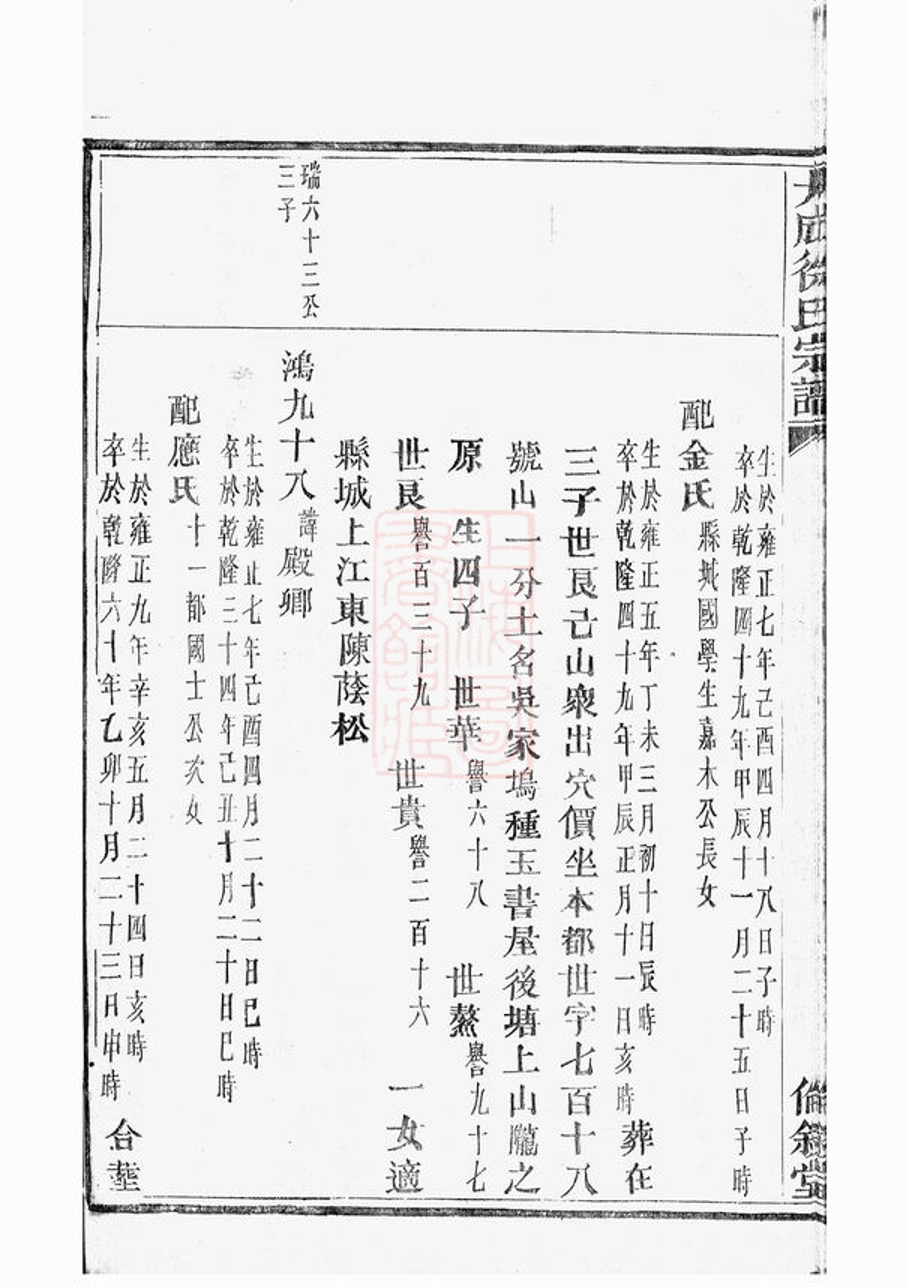 徐氏宗譜
倫敘堂
生於雍正七年己酉四月十八日子時
卒於乾隆四十九年甲辰十一月二十五日子時
配金氏縣城國學生嘉木公長女
生於雍正五年丁未三月初十日辰時
卒於乾隆四十九年甲辰正月十一日亥時 葬在
三子世艮己山衆出穴價坐本都世字七百十八
號山一分土名吳家塢種玉書屋後塘上山隴之
原 生四子 世華譽六十八 世鰲譽九十七
世艮譽百三十九 世貴譽二百十六 一女適
縣城上江東陳蔭松
瑞六十三公
三子
鴻九十八諱殿卿
生於雍正七年己酉四月二十二日巳時
卒於乾隆三十四年己丑十月二十日巳時
配應氏十一都國士公次女
生於雍正九年辛亥五月二十四日亥時
卒於乾隆六十年乙卯十月二十三日申時 合塟